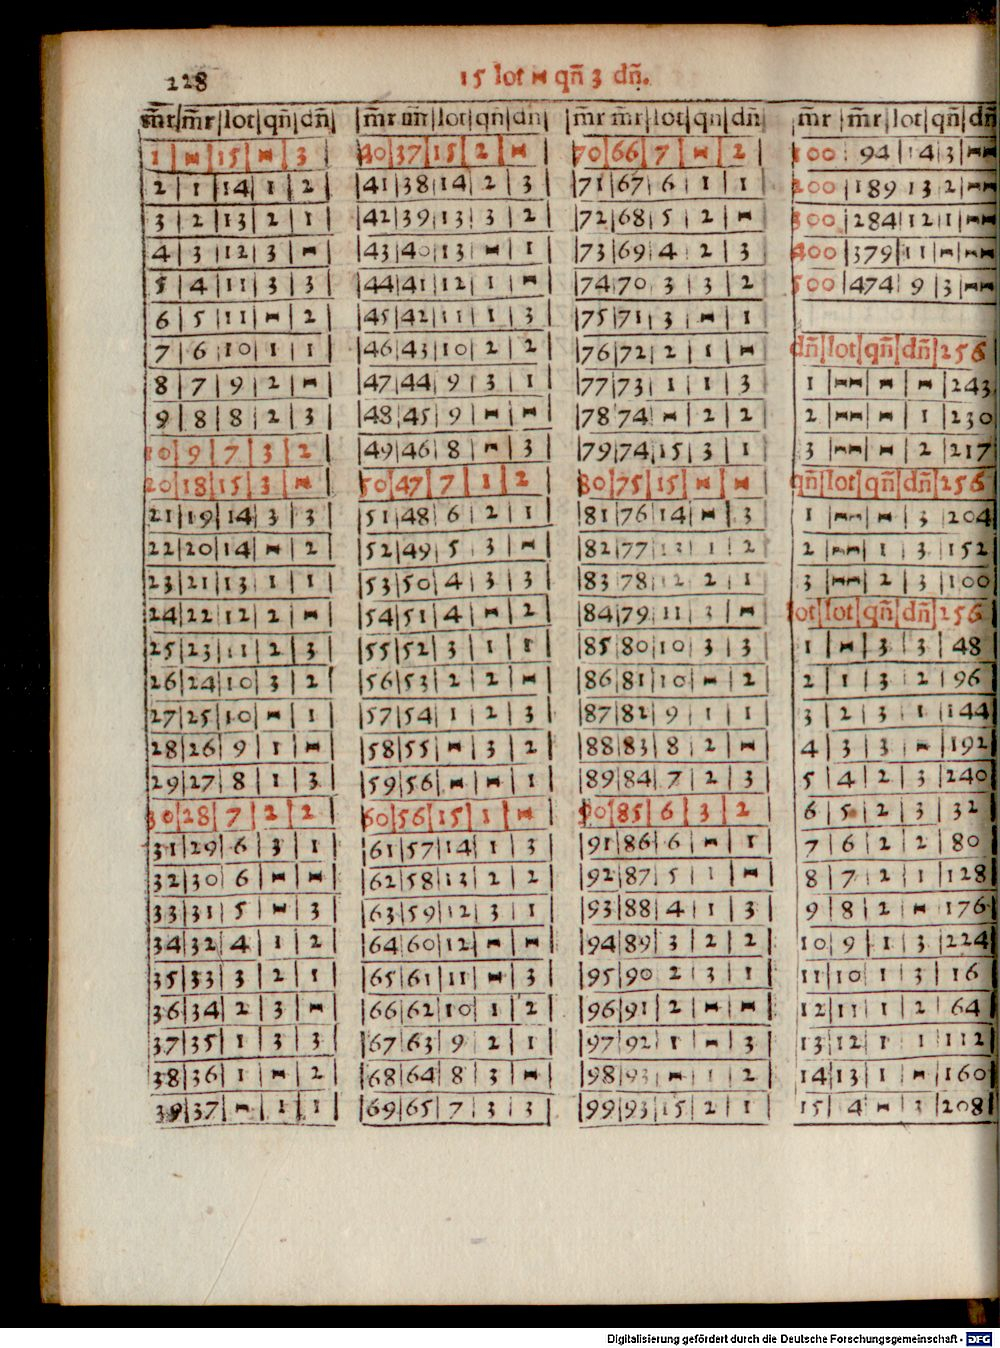 228
15 lot ⋈ qn̄ 3 dn̄.
m̄r m̄r lot qn̄ dn̄
1 ⋈ 15 ⋈ 3
2 1 14 1 2
3 2 13 2 1
4 3 12 3 ⋈
5 4 11 3 3
6 5 11 ⋈ 2
7 6 10 1 1
8 7 9 2 ⋈
9 8 8 2 3
10 9 7 3 2
20 18 15 3 ⋈
21 19 14 3 3
22 20 14 ⋈ 2
23 21 13 1 1
24 22 12 2 ⋈
25 23 11 2 3
26 24 10 3 2
27 25 10 ⋈ 1
28 26 9 1 ⋈
29 27 8 1 3
30 28 7 2 2
31 29 6 3 1
32 30 6 ⋈ ⋈
33 31 5 ⋈ 3
34 32 4 1 2
35 33 3 2 1
36 34 2 3 ⋈
37 35 1 3 3
38 36 1 ⋈ 2
39 37 ⋈ 1 1
m̄r m̄r lot qn̄ dn̄
40 37 15 2 ⋈
41 38 14 2 3
42 39 13 3 2
43 40 13 ⋈ 1
44 41 12 1 ⋈
45 42 11 1 3
46 43 10 2 2
47 44 9 3 1
48 45 9 ⋈ ⋈
49 46 8 ⋈ 3
50 47 7 1 2
51 48 6 2 1
52 49 5 3 ⋈
53 50 4 3 3
54 51 4 ⋈ 2
55 52 3 1 1
56 53 2 2 ⋈
57 54 1 2 3
58 55 ⋈ 3 2
59 56 ⋈ ⋈ 1
60 56 15 1 ⋈
61 57 14 1 3
62 58 13 2 2
63 59 12 3 1
64 60 12 ⋈ ⋈
65 61 11 ⋈ 3
66 62 10 1 2
67 63 9 2 1
68 64 8 3 ⋈
69 65 7 3 3
m̄r m̄r lot qn̄ dn̄
70 66 7 ⋈ 2
71 67 6 1 1
72 68 5 2 ⋈
73 69 4 2 3
74 70 3 3 2
75 71 3 ⋈ 1
76 72 2 1 ⋈
77 73 1 1 3
78 74 ⋈ 2 2
79 74 15 3 1
80 75 15 ⋈ ⋈
81 76 14 ⋈ 3
82 77 13 1 2
83 78 12 2 1
84 79 11 3 ⋈
85 80 10 3 3
86 81 10 ⋈ 2
87 82 9 1 1
88 83 8 2 ⋈
89 84 7 2 3
90 85 6 3 2
91 86 6 ⋈ 1
92 87 5 1 ⋈
93 88 4 1 3
94 89 3 2 2
95 90 2 3 1
96 91 2 ⋈ ⋈
97 92 1 ⋈ 3
98 93 ⋈ 1 2
99 93 15 2 1
m̄r m̄r lot qn̄ dn̄
100 94 14 3 ⋈⋈
200 189 13 2 ⋈⋈
300 284 12 1 ⋈⋈
400 379 11 ⋈ ⋈⋈
500 474 9 3 ⋈⋈
dn̄ lot qn̄ dn̄ 256
1 ⋈⋈ ⋈ ⋈ 243
2 ⋈⋈ ⋈ 1 230
3 ⋈⋈ ⋈ 2 217
qn̄ lot qn̄ dn̄ 256
1 ⋈⋈ ⋈ 3 204
2 ⋈⋈ 1 3 152
3 ⋈⋈ 2 3 100
lot lot qn̄ dn̄ 256
1 ⋈ 3 3 48
2 1 3 2 96
3 2 3 1 144
4 3 3 ⋈ 192
5 4 2 3 240
6 5 2 3 32
7 6 2 2 80
8 7 2 1 128
9 8 2 ⋈ 176
10 9 1 3 224
11 10 1 3 16
12 11 1 2 64
13 12 1 1 112
14 13 1 ⋈ 160
15 4 ⋈ 3 208
Digitalisierung gefördert durch die Deutsche Forschungsgemeinschaft - DFG